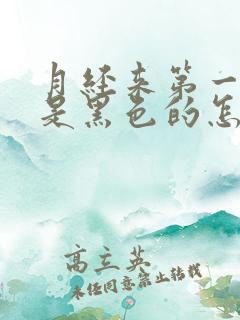 月经来第一
是黑色的怎
高立英
未经同意禁止转载